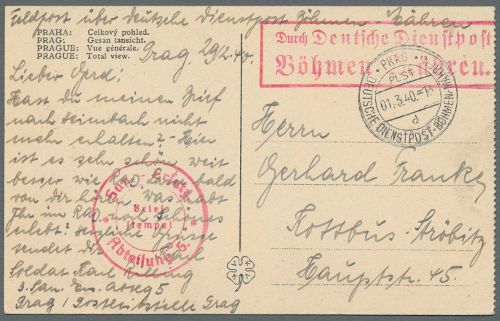 Feldpost über Deutsche Dienstpost Böhmen-Mähren
PRAHA: Celkový pohled.
PRAG: Gesamtansicht.
PRAGUE: Vue générale.
PRAGUE: Total view.
Prag, 29/2.40.
Lieber Gerd!
Hast du meinen Brief
nach
mehr erhalten? - Hier
ist es sehr schön weit
besser wie RAD.
von dir hören was habt
Ihr im RAD noch schönes
erlebt.
sendet dir Karl
Soldat Karl
3. San. Ers. Abtlg 5
Prag / Postleitstelle Prag
Durch Deutsche Dienstpost
Böhmen-Mähren.
PRAG
01.3.40.-18
d
DEUTSCHE DIENSTPOST-BÖHMEN-MÄHREN
San.-Ersatz-
Brief-
stempel
Abteilung 5.
Herrn
Gerhard Franke,
Kottbus-Ströbitz
Hauptstr. 45.